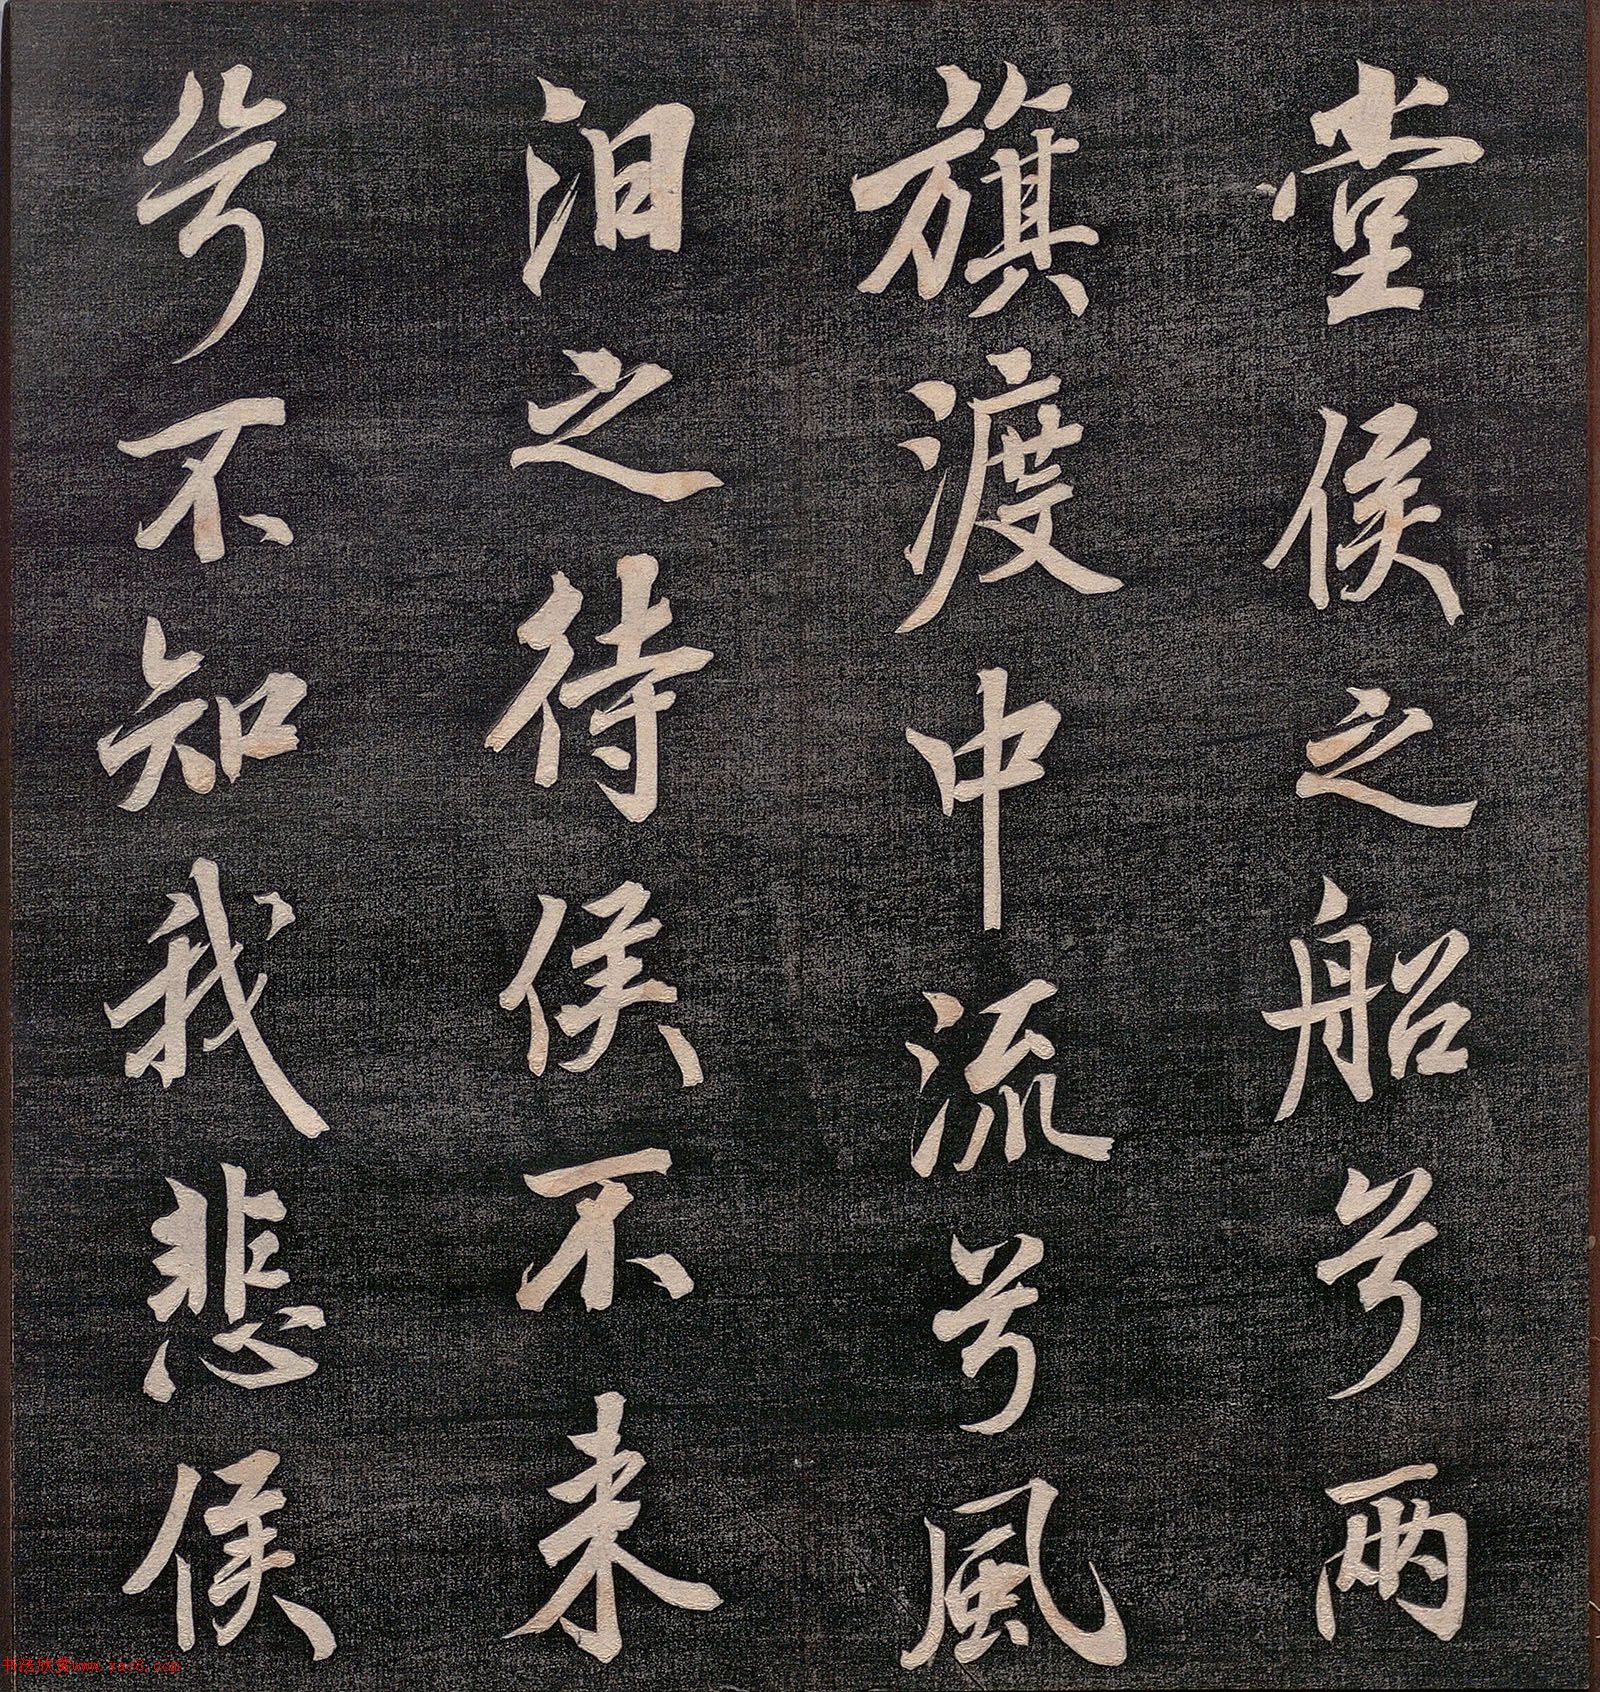 堂侯之船兮兩
旗渡中流兮風
汨之待侯不来
兮不知我悲侯
书法欣赏www.yac8.com